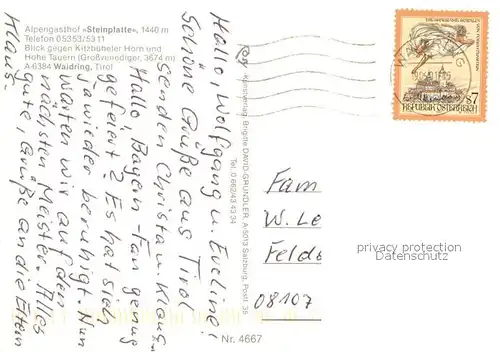 Alpengasthof »Steinplatte«, 1440 m
Telefon 05353/5311
Blick gegen Kitzbüheler Horn und
Hohe Tauern (Großvenediger, 3674 m)
A-6384 Waidring, Tirol
Hallo, Wolfgang u. Eveline!
Schöne Grüße aus Tirol
senden Christa u. Klaus.
Hallo, Bayern-Fan genug
gefeiert? Es hat sich
ja wieder beruhigt. Nun
warten wir auf den
nächsten Meister. Alles
gute, Grüße an die Eltern
Klaus.
Alpinsparring, Brigitte DAVID-GRÜNDLER, A-5013 Salzburg, Postf. 35
Tel. 0 662/43 43 34
REPUBLIK ÖSTERREICH
S7
Fam
W. Le
Felds
08107
privacy protection
Datenschutz
Nr. 4667